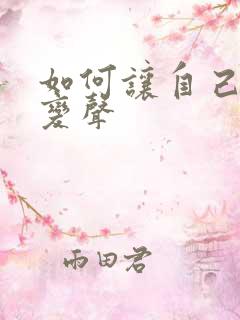 如何讓自己
變聲
雨田君